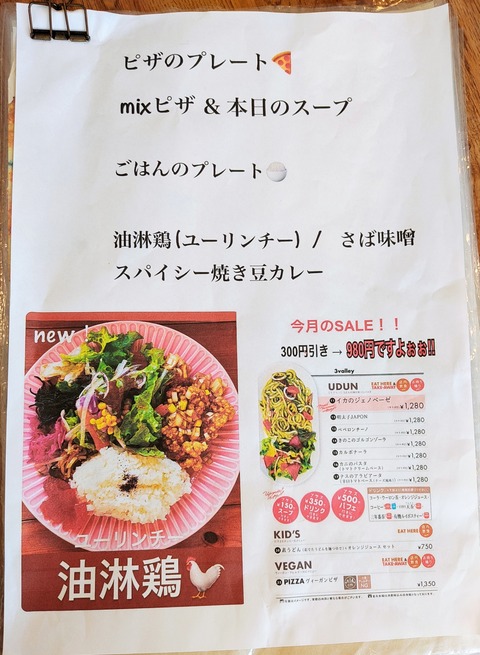 ピザのプレート🍕
mixピザ & 本日のスープ
ごはんのプレート🍚
油淋鶏(ユーリンチー) / さば味噌
スパイシー焼き豆カレー
new!
ユーリンチー
油淋鶏🐓
今月のSALE！！
300円引き → 980円ですよぉぉ!!
3valley
UDUN EAT HERE & TAKE-AWAY
イカのジェノベーゼ ¥1,280
明太子JAPON ¥1,280
ペペロンチーノ ¥1,280
きのこのゴルゴンゾーラ ¥1,280
カルボナーラ ¥1,280
カニのパスタ ¥1,280
ナスのアラビアータ ¥1,280
¥150 スープ
¥350 ドリンク
¥500 パフェ
KID'S EAT HERE
オレンジジュース セット ¥750
VEGAN EAT HERE & TAKE-AWAY
PIZZA ヴィーガンピザ ¥1,350